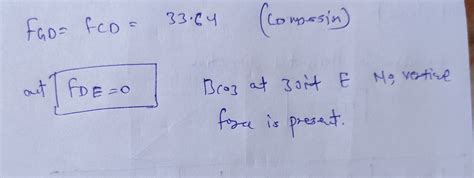 F_GD = F_CD = 33.64 (Compessin)
F_DE = 0 Bcoz at Joint E No vertice
force is present.